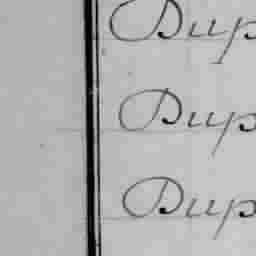 Dup
Dup
Dup